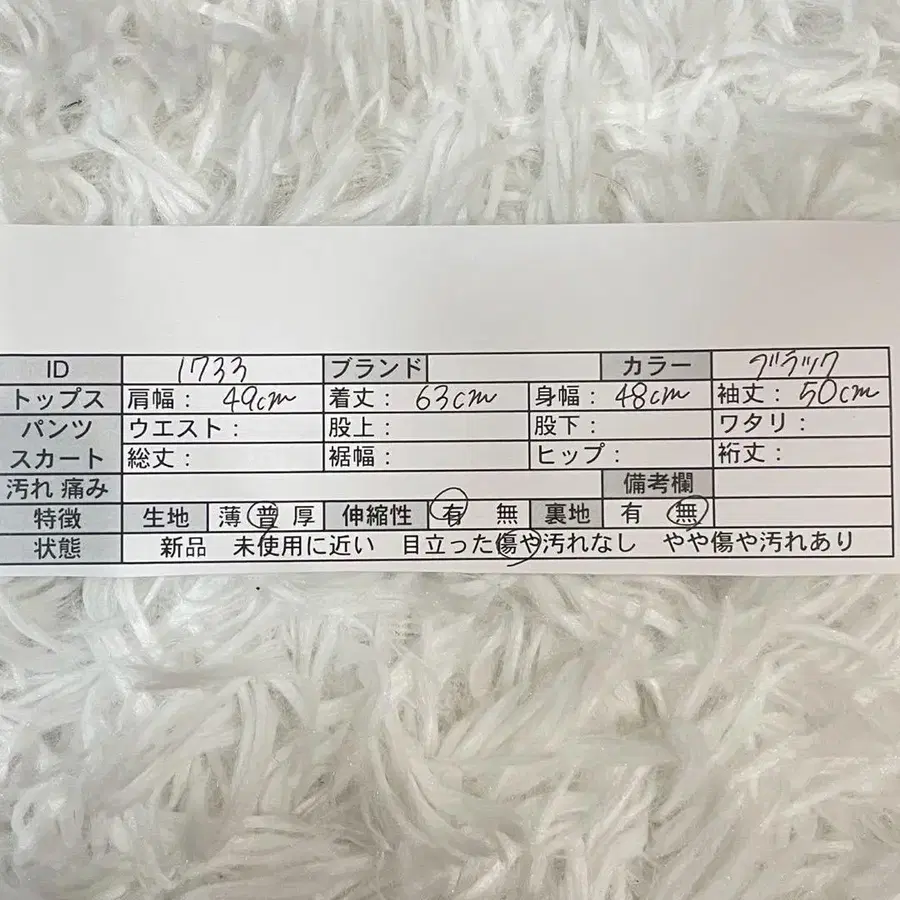 ID 1733 ブランド カラー ブラック
トップス 肩幅: 49cm 着丈: 63cm 身幅: 48cm 袖丈: 50cm
パンツ ウエスト: 股上: 股下: ワタリ:
スカート 総丈: 裾幅: ヒップ: 裄丈:
汚れ 痛み 備考欄
特徴 生地 薄 普 厚 伸縮性 有 無 裏地 有 無
状態 新品 未使用に近い 目立った傷や汚れなし やや傷や汚れあり